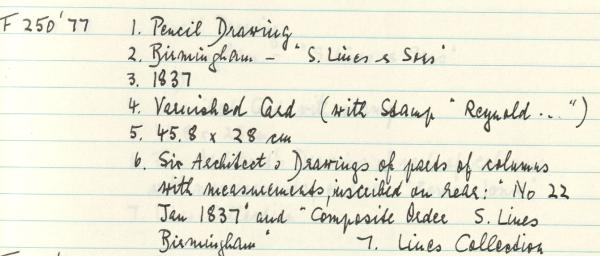 F 250'77 1. Pencil Drawing
2. Birmingham - "S. Lines & Sons"
3. 1837
4. Varnished Card (with Stamp "Reynold...")
5. 45.8 x 28 cm
6. Six Architect's Drawings of parts of columns
with measurements, inscribed on rear: "No 22
Jan 1837" and "Composite Order S. Lines
Birmingham" 7. Lines Collection